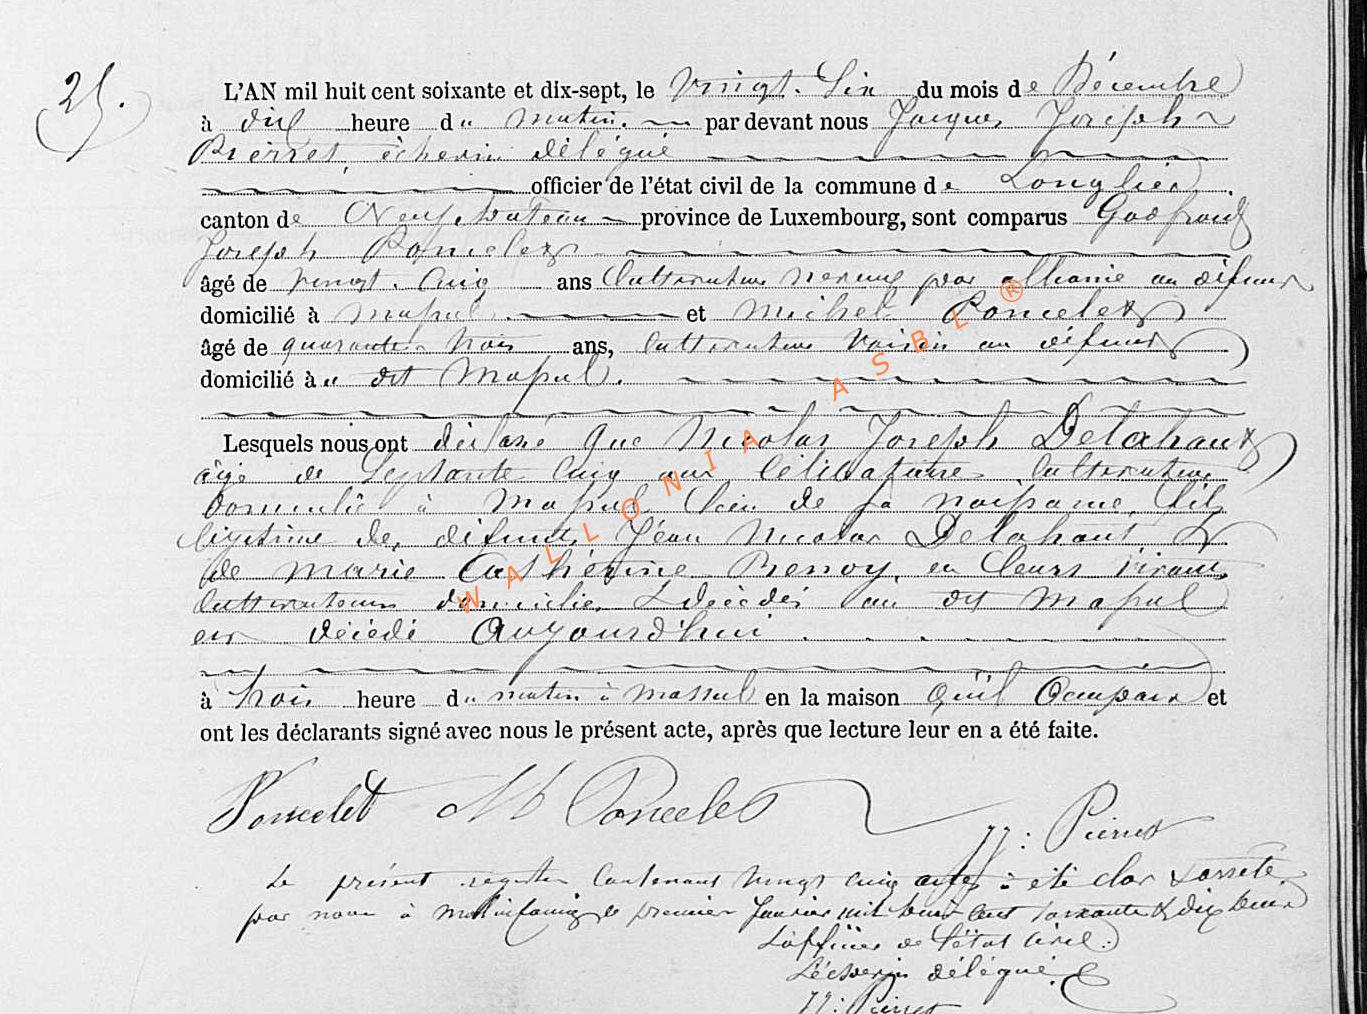 25.
L'AN mil huit cent soixante et dix-sept, le Vingt-Six du mois de Décembre
à dix heure du matin. par devant nous Jacques Joseph
Pierret, échevin délégué
officier de l'état civil de la commune de Longlier
canton de Neufchateau province de Luxembourg, sont comparus Godfroid
Joseph Poncelet
âgé de vingt-cinq ans Cultivateur neveux par alliance au défunt
domicilié à Massul et Michel Poncelet
âgé de quarante trois ans, Cultivateur Voisin au défunt
domicilié àu dit Massul.
Lesquels nous ont déclaré que Nicolas Joseph Delahaut
âgé de Septante Cinq ans Célibataire Cultivateur
domicilié à Massul lieu de sa naissance, fils
légitime de défunts Jéan Nicolas Delahaut &
de Marie Cathérine Renoy, en leurs vivant
Cultivateurs domiciliés & décédés au dit Massul
est décédé Aujourd'hui
à trois heure du matin à Massul en la maison qu'il Occupait et
ont les déclarants signé avec nous le présent acte, après que lecture leur en a été faite.
Poncelet M Poncelet
JJ: Pierret
Le présent registre Contenant vingt cinq actes à été clos & arrêté
par nous à le premier Janvier mil huit cent soixante & dix huit
L'officier de l'état Civil:
L'échevin délégué
JJ: Pierret
WALLONIA ASBL ®